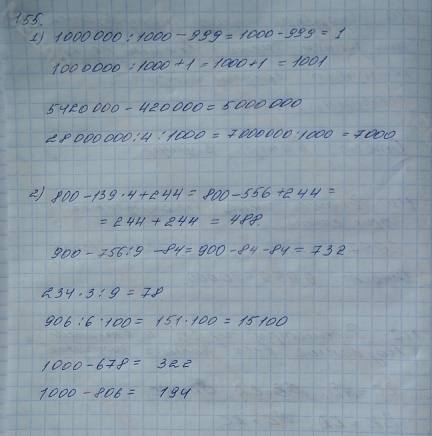 155.
1) 1000000 : 1000 - 999 = 1000 - 999 = 1
1000000 : 1000 + 1 = 1000 + 1 = 1001
5420000 - 420000 = 5000000
28000000 : 4 : 1000 = 7000000 : 1000 = 7000
2) 800 - 139 · 4 + 244 = 800 - 556 + 244 =
= 244 + 244 = 488.
900 - 756 : 9 - 84 = 900 - 84 - 84 = 732
234 · 3 : 9 = 78
906 : 6 · 100 = 151 · 100 = 15100
1000 - 678 = 322
1000 - 806 = 194